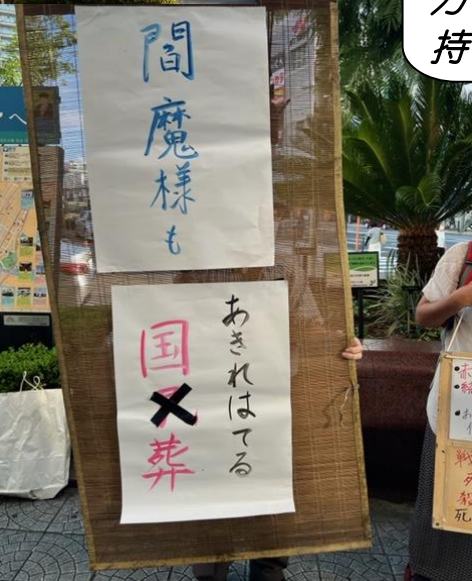 閻魔様も
あきれはてる
国✖葬
持
へ
戦
死